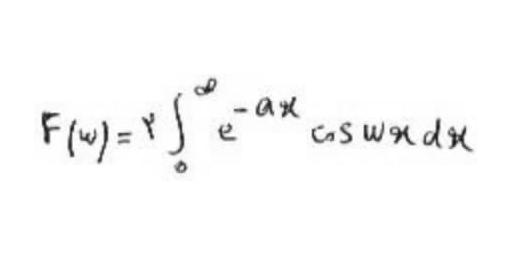 F(w) = ۲ ∫₀^∞ e^{-ax} cos wx dx